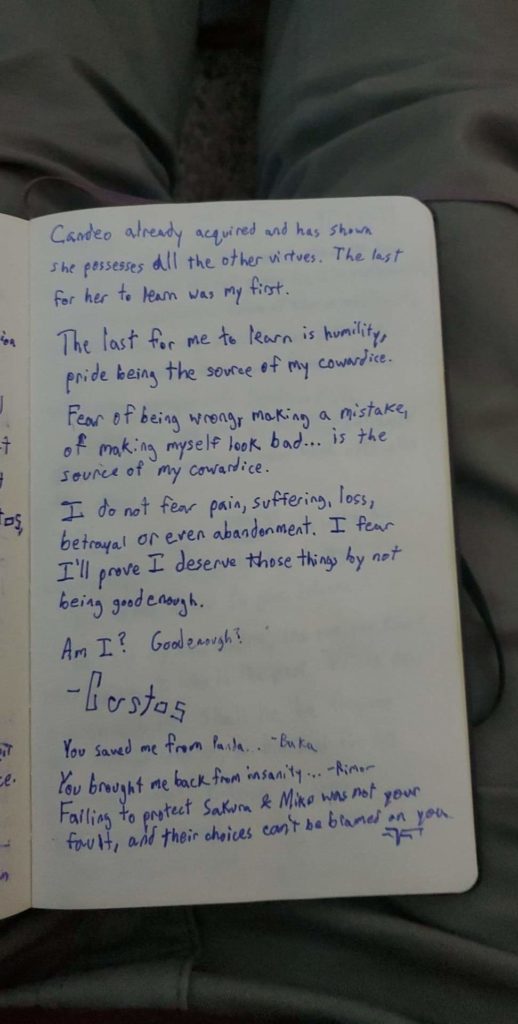 Candeo already acquired and has shown
she possesses all the other virtues. The last
for her to learn was my first.
The last for me to learn is humility,
pride being the source of my cowardice.
Fear of being wrong, making a mistake,
of making myself look bad... is the
source of my cowardice.
I do not fear pain, suffering, loss,
betrayal or even abandonment. I fear
I'll prove I deserve those things by not
being good enough.
Am I? Good enough?
-Custos
You saved me from ... -Buka
You brought me back from insanity... -Rimor
Failing to protect Sakura & Miko was not your
fault, and their choices can't be blamed on you